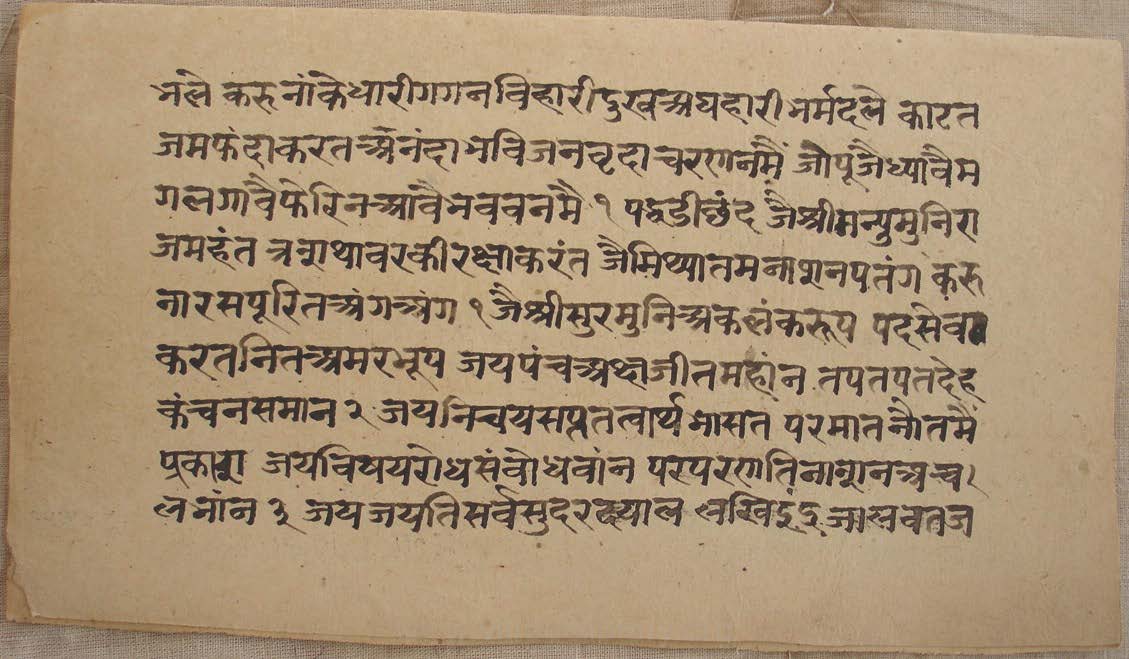 भले करुनांकेधारीगगनविहारीदुखअघहारीभर्मदले काटत
जमफंदाकरतअनंदाभविजनवृदाचरणनमैं जोपूजैध्यावैम
गलगावैफेरिनआंवैभववनमै १ पद्धडीछंद जैश्रीमन्युमुनिरा
जमहंत त्रशथावरकीरक्षाकरंत जैमिथ्यातमनाशनपतंग करु
नारसपूरितअंगअंग १ जैश्रीसुरमुनिअकलंकरूप पदसेव
करतनितअमरभूप जयपंचअक्षजीतमहांन तपतपतदेह
कंचनसमान २ जयनिचयसप्ततत्वार्थभासत परमातनौतमैं
प्रकाश जयविषयरोधसंवोधवांन परपरणतिनाशनअच
लभांन ३ जयजयतिसर्वसुदरदयाल लखिइंद्रजालवतज